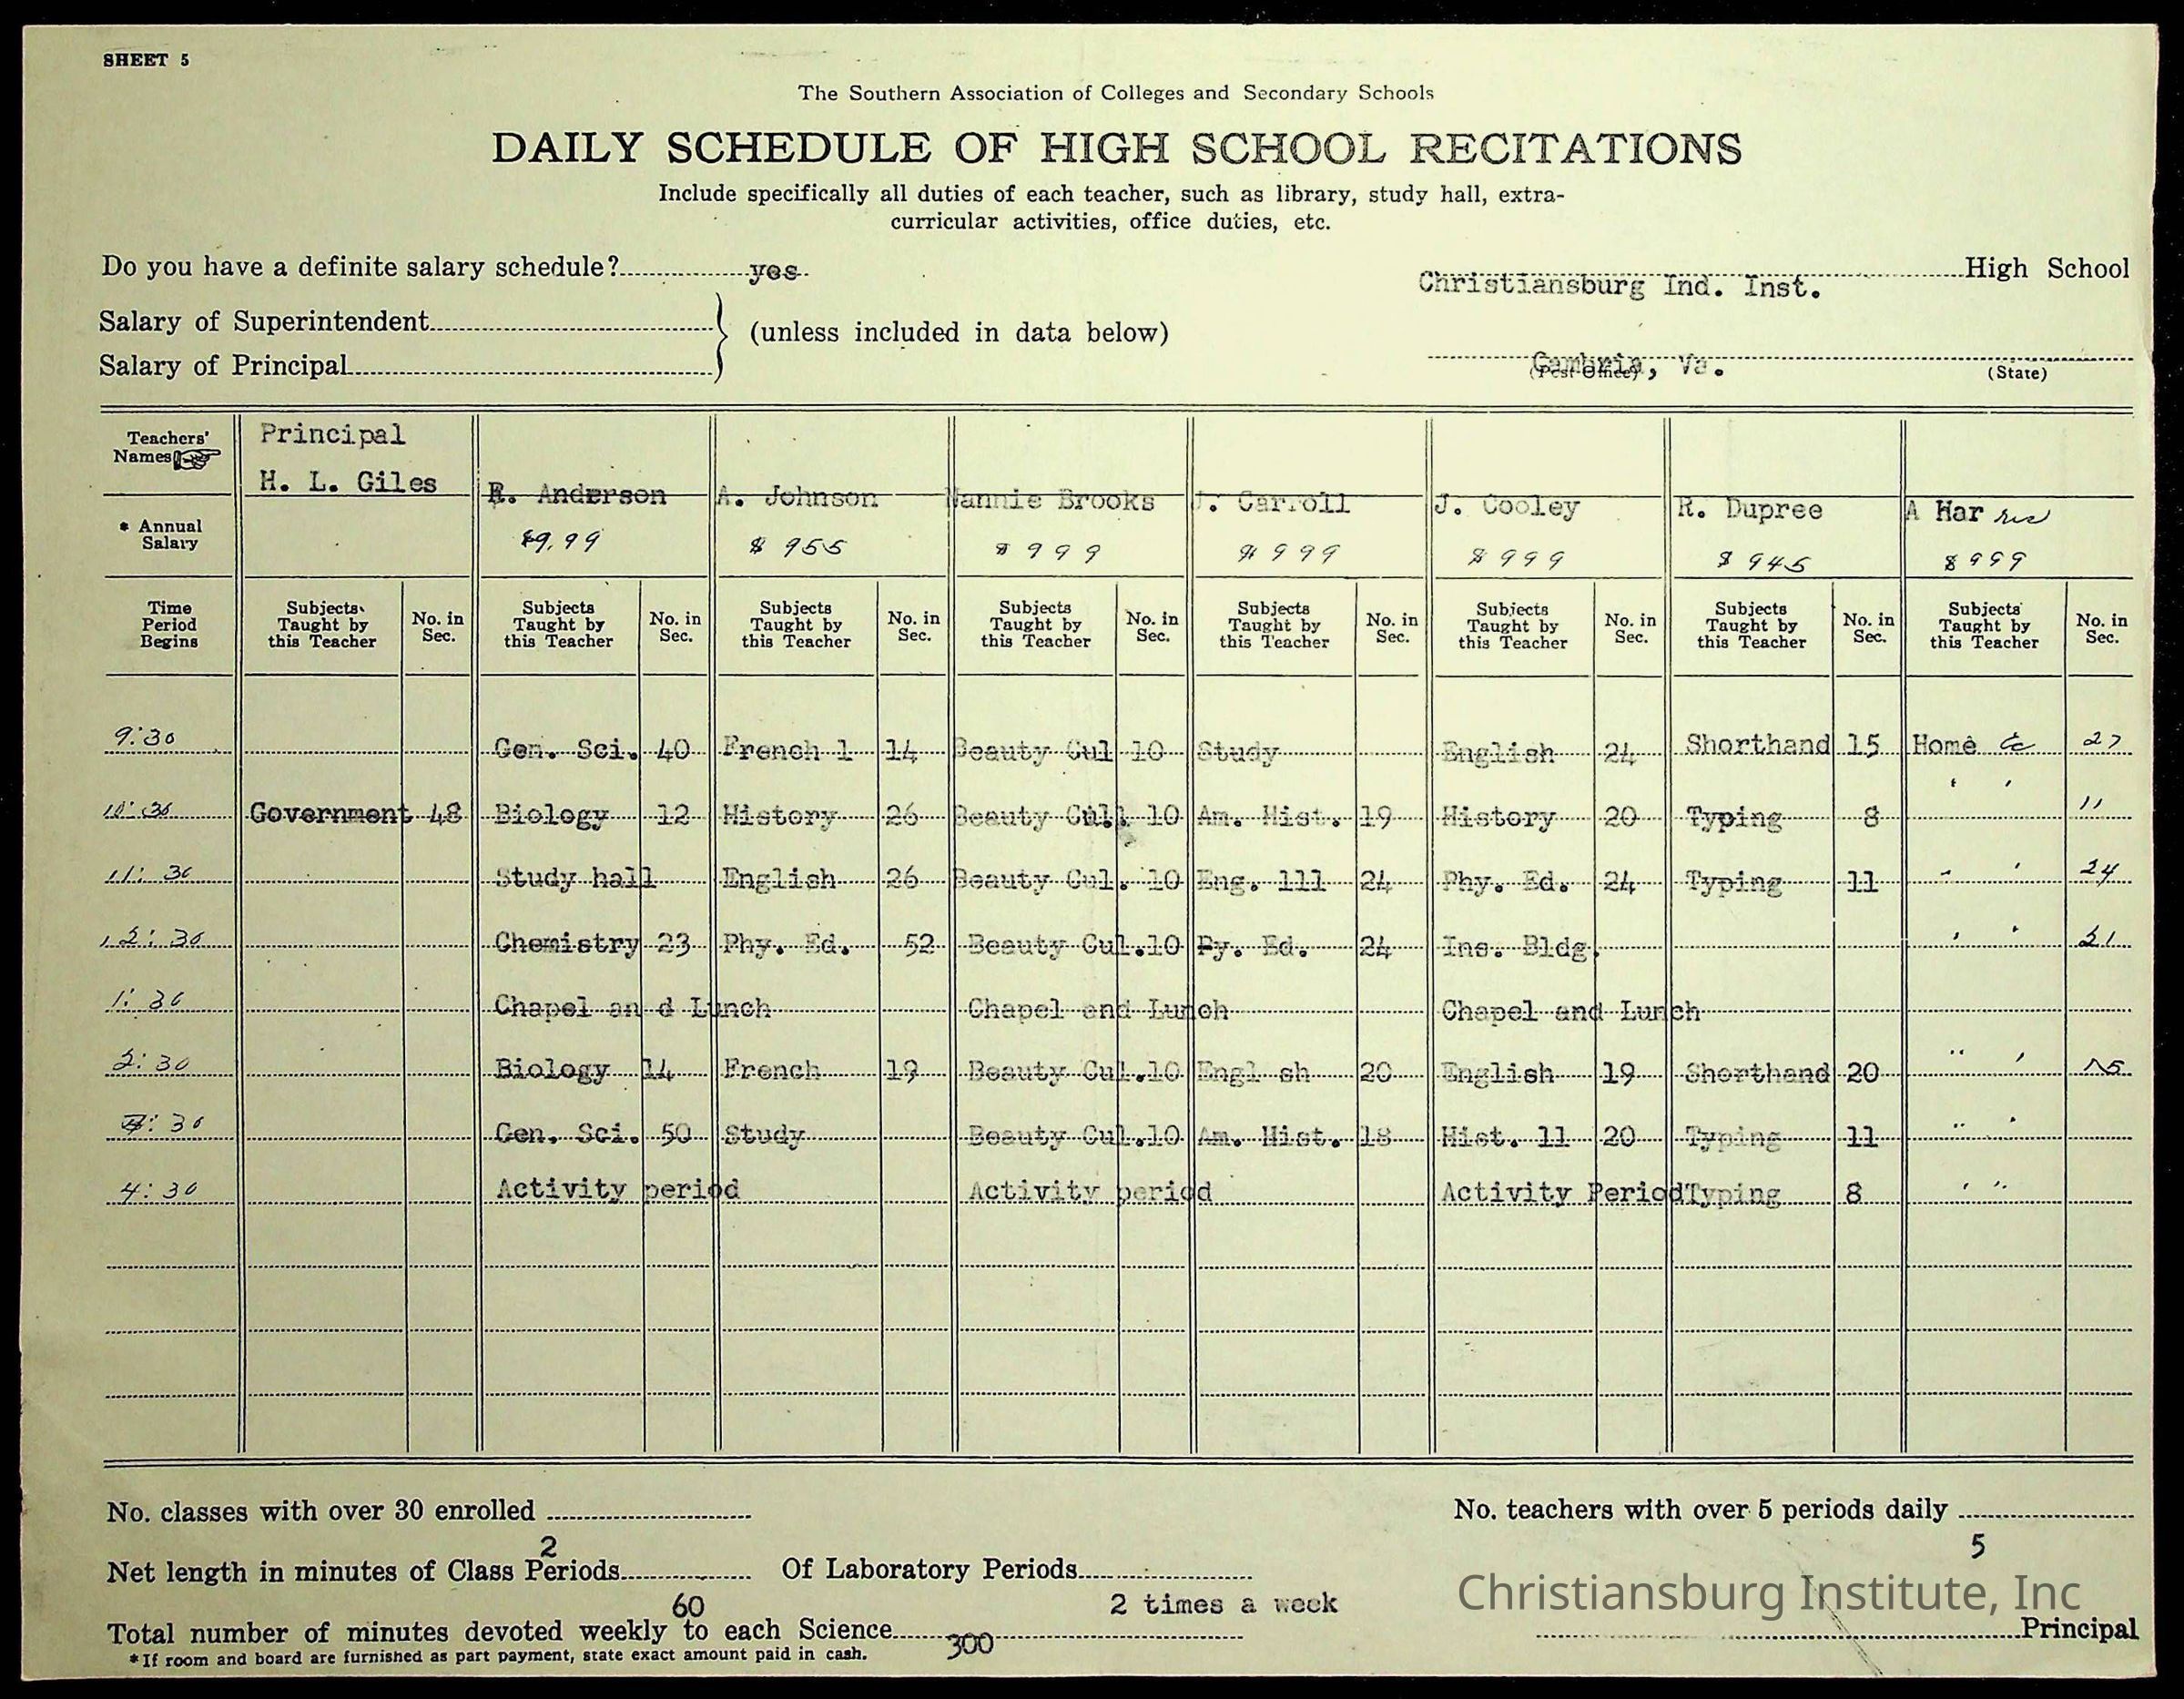 SHEET 5
The Southern Association of Colleges and Secondary Schools
DAILY SCHEDULE OF HIGH SCHOOL RECITATIONS
Include specifically all duties of each teacher, such as library, study hall, extra-
curricular activities, office duties, etc.
Do you have a definite salary schedule? yes
Christiansburg Ind. Inst. High School
Salary of Superintendent
(unless included in data below)
Salary of Principal
Cambria, Va.
(Post Office) (State)
Teachers' Names Principal H. L. Giles R. Anderson A. Johnson Nannie Brooks J. Carroll J. Cooley R. Dupree A Harris
* Annual Salary $9.99 $ 955 $ 999 $ 999 $ 999 $ 945 $ 999
Time Period Begins Subjects Taught by this Teacher No. in Sec. Subjects Taught by this Teacher No. in Sec. Subjects Taught by this Teacher No. in Sec. Subjects Taught by this Teacher No. in Sec. Subjects Taught by this Teacher No. in Sec. Subjects Taught by this Teacher No. in Sec. Subjects Taught by this Teacher No. in Sec. Subjects Taught by this Teacher No. in Sec.
9:30 Gen. Sci. 40 French 1 14 Beauty Cul 10 Study English 24 Shorthand 15 Home Ec 27
10:30 Government 48 Biology 12 History 26 Beauty Cul. 10 Am. Hist. 19 History 20 Typing 8 " " 11
11:30 Study hall English 26 Beauty Cul. 10 Eng. 111 24 Phy. Ed. 24 Typing 11 " " 24
12:30 Chemistry 23 Phy. Ed. 52 Beauty Cul. 10 Py. Ed. 24 Ins. Bldg. " " 21
1:30 Chapel an d Lunch Chapel and Lunch Chapel and Lunch
2:30 Biology 14 French 19 Beauty Cul. 10 Engl sh 20 English 19 Shorthand 20 " " 15
3:30 Gen. Sci. 50 Study Beauty Cul. 10 Am. Hist. 18 Hist. 11 20 Typing 11 " "
4:30 Activity period Activity period Activity Period Typing 8 " "
No. classes with over 30 enrolled 2
No. teachers with over 5 periods daily 5
Net length in minutes of Class Periods 60 Of Laboratory Periods 2 times a week
Christiansburg Institute, Inc
Total number of minutes devoted weekly to each Science 300
Principal
*If room and board are furnished as part payment, state exact amount paid in cash.